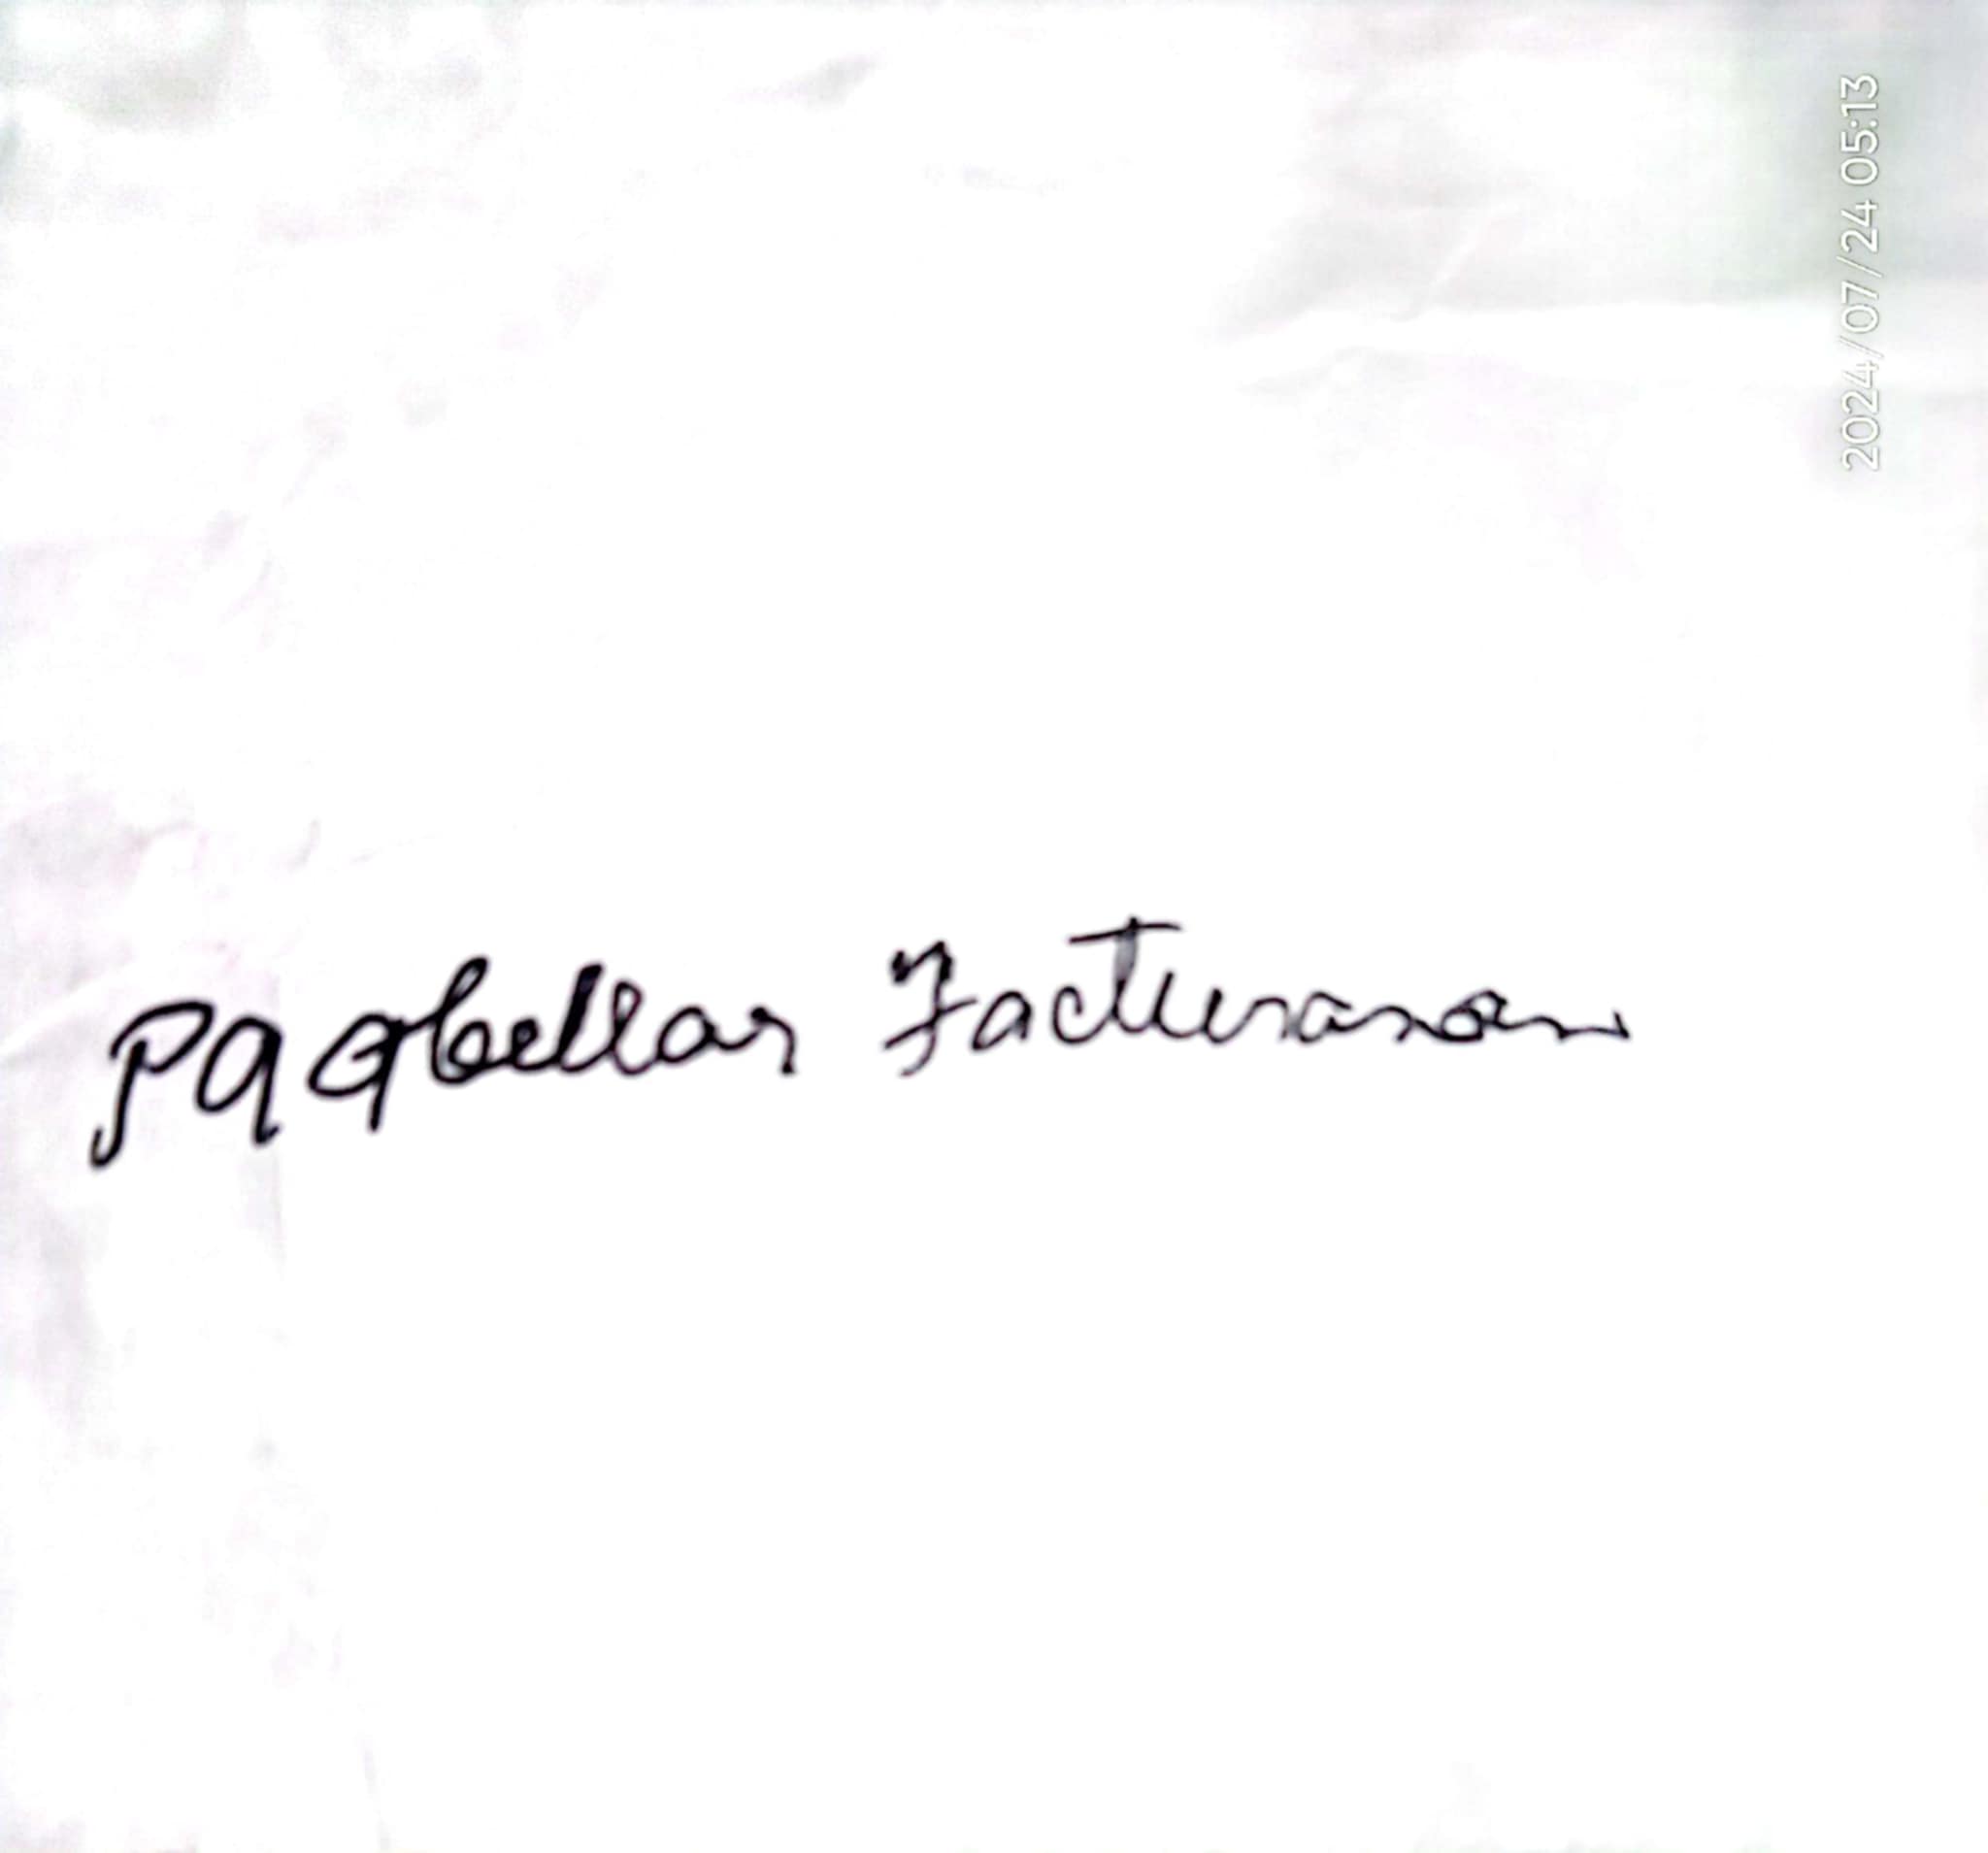 2024/07/24 05:13
pqqbellar Facturaron